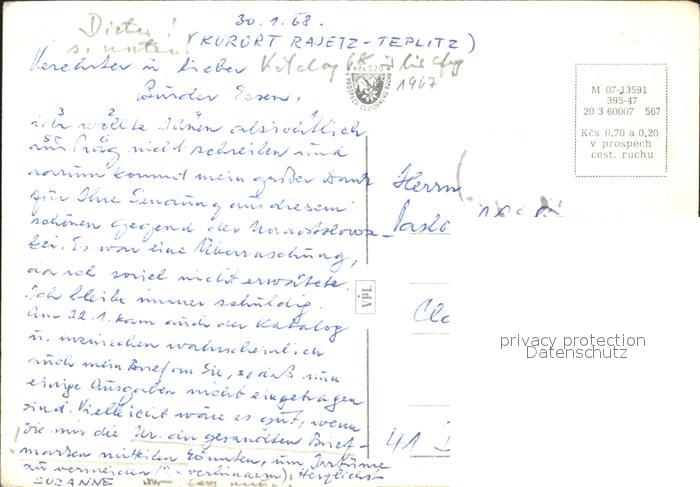 30.1.68.
Dieter!
s. unten!
(KURORT RAJETZ-TEPLITZ)
Verehrter u lieber
Katalog 68
1967
Bruder Esser,
ich wollte Ihnen absichtlich
aus Prag nicht schreiben und
darum kommt mein großer Dank
für Ihre Sendung aus diesem
schönen Gegend der Nordslowa-
kei. Es war eine Überraschung,
da ich soviel nicht erwartete.
Ich bleibe immer schuldig.
Am 22.1. kam auch der Katalog
u. inzwischen wahrscheinlich
auch mein Brief an Sie, so daß nun
einige Ausgaben nicht eingetragen
sind. Vielleicht wäre es gut, wenn
Sie mir die Nr. der gesandten Brief-
marken mitteilen könnten, um Irrtümer
zu vermeiden (zu verhindern). Herzlichst
SUZANNE
VPL
M 07-13591
395-47
20 3 60007 567
Kčs 0,70 a 0,20
v prospech
cest. ruchu
Herrn
41
privacy protection
Datenschutz